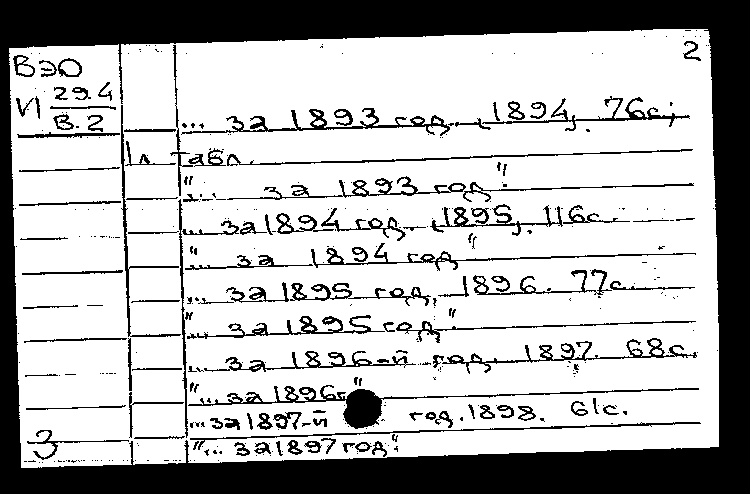 2
ВЭО
VI 29.4
В.2
... за 1893 год. [1894]. 76с;
1л. табл.
"... за 1893 год".
... за 1894 год. [1895]. 116с.
"... за 1894 год"
... за 1895 год. 1896. 77с.
"... за 1895 год".
... за 1896-й год. 1897. 68с.
"... за 1896г."
... за 1897-й год. 1898. 61с.
"... за 1897 год".
3